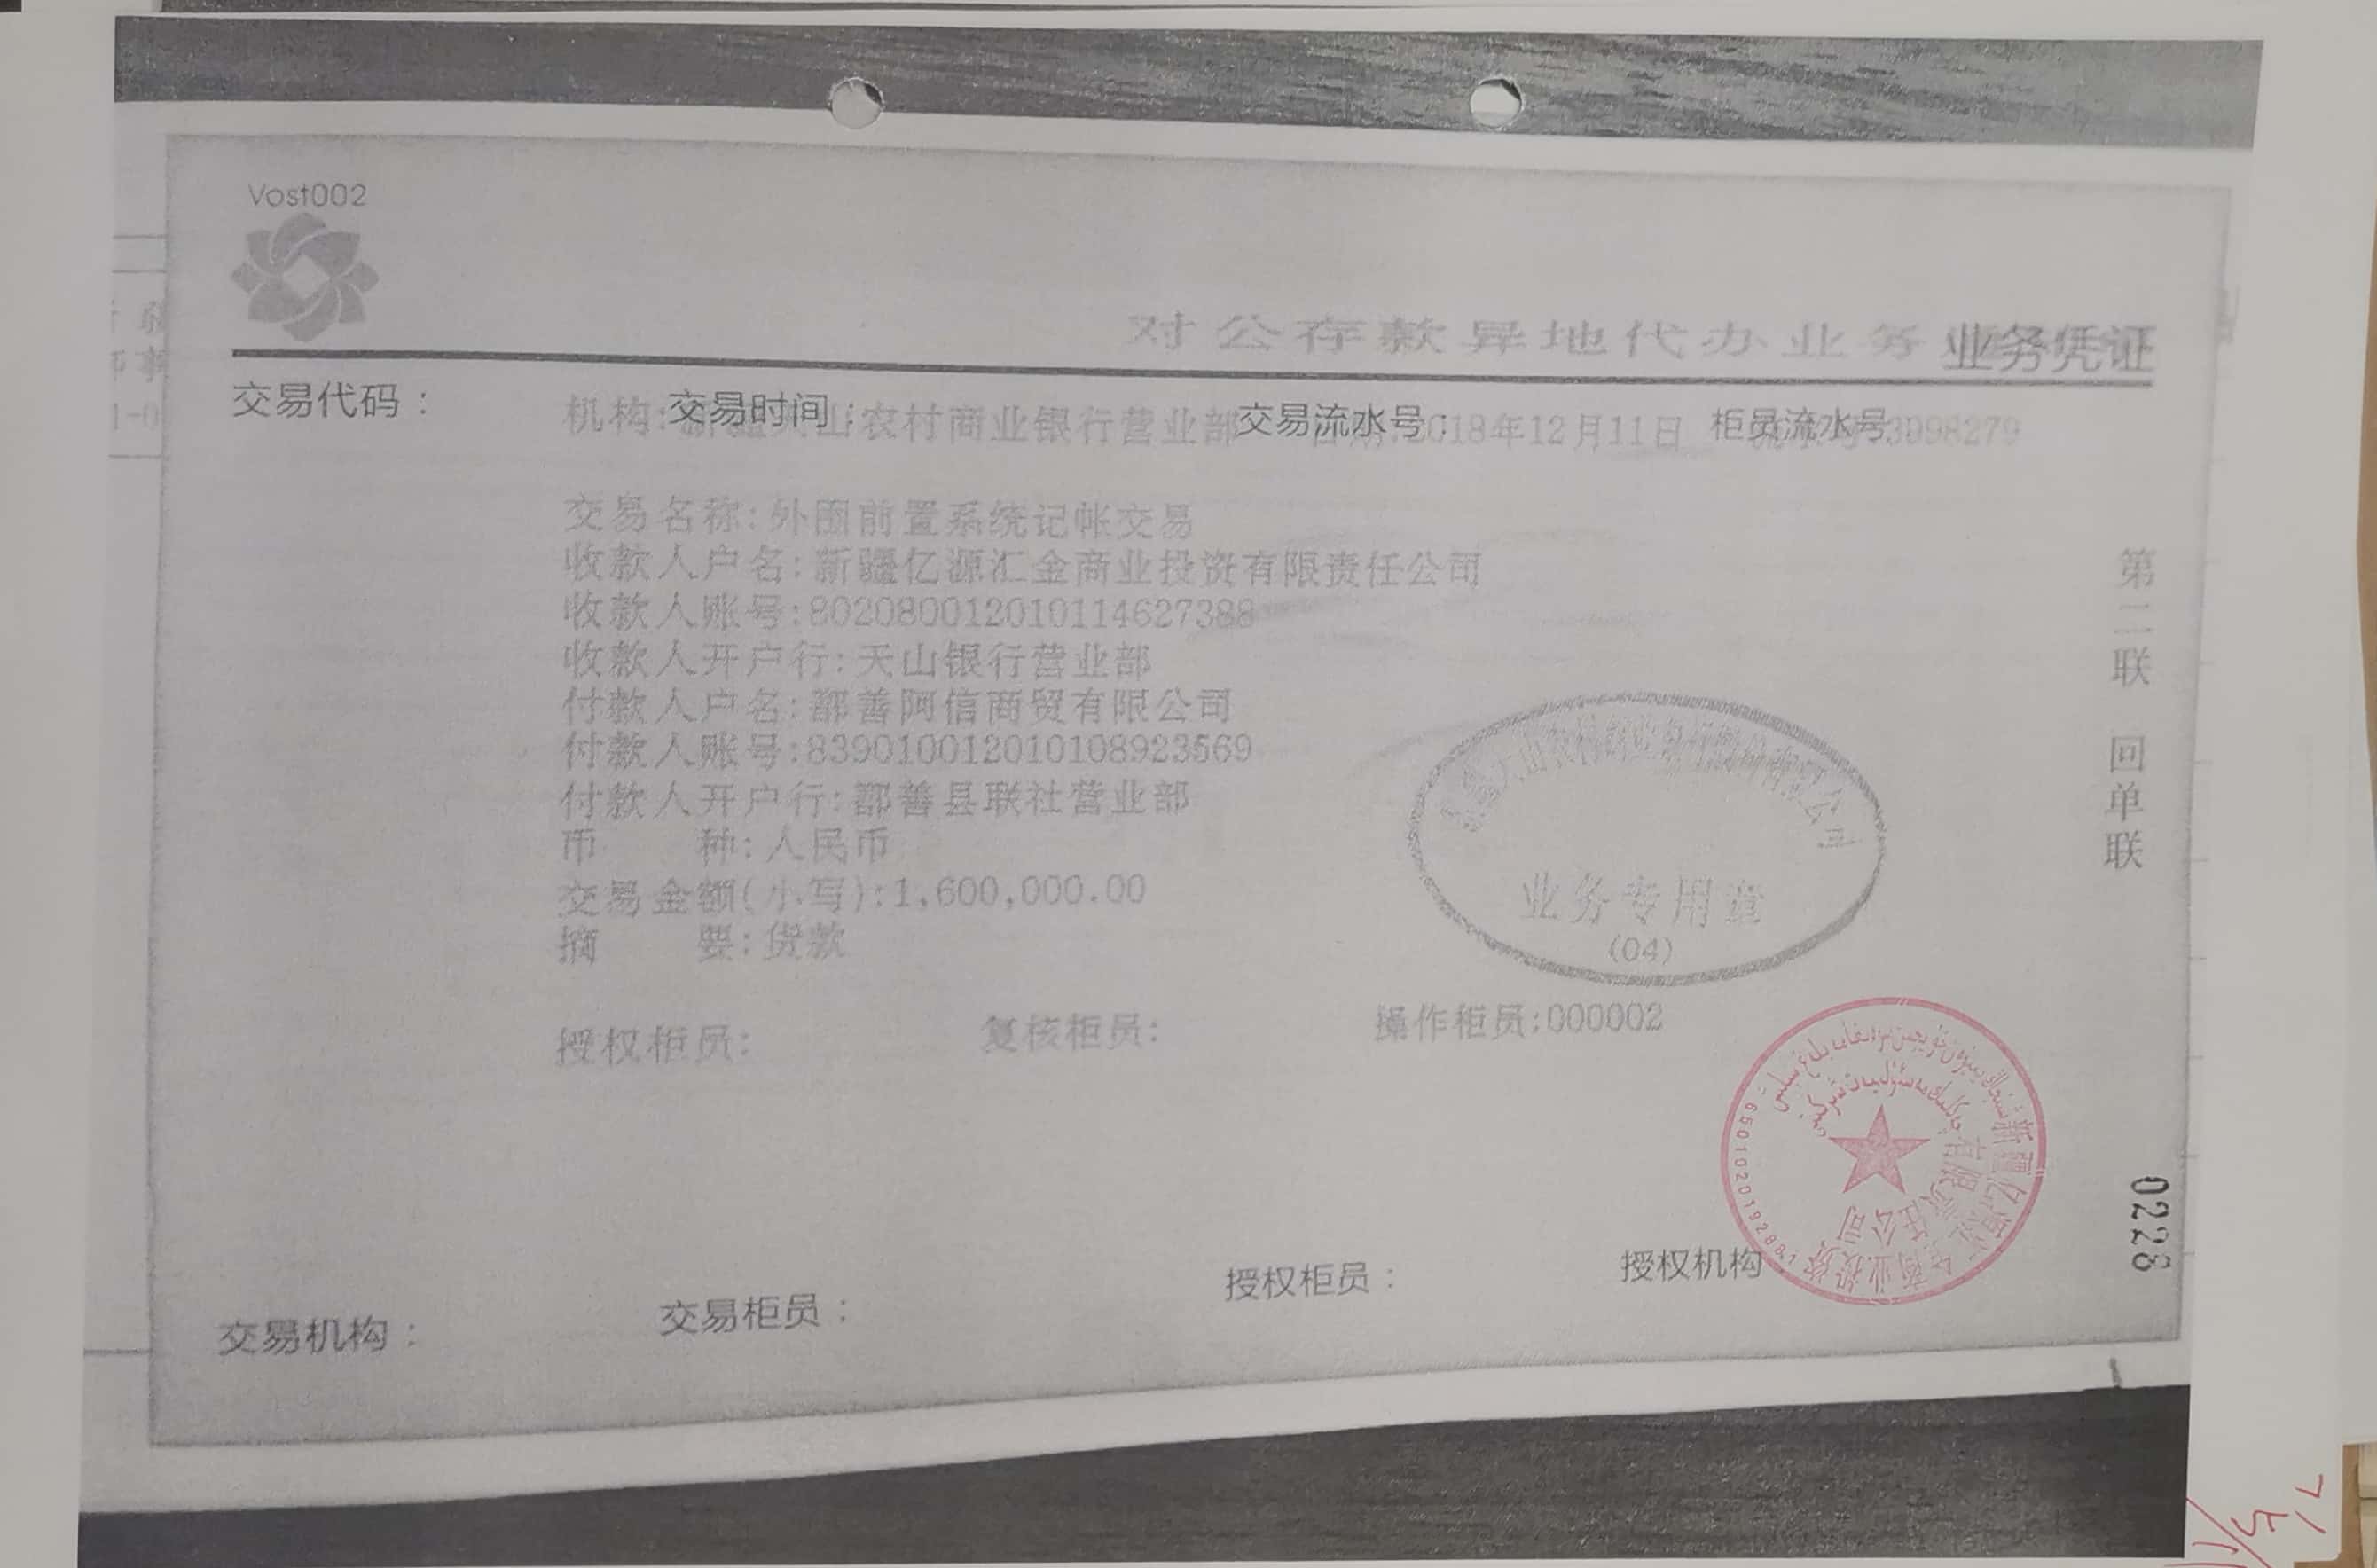 Vost002
对公存款异地代办业务
业务凭证
交易代码：
交易时间：
交易流水号：
柜员流水号：
机构:新疆天山农村商业银行营业部
2018年12月11日
3998279
交易名称:外围前置系统记帐交易
收款人户名:新疆亿源汇金商业投资有限责任公司
收款人账号:802080012010114627388
收款人开户行:天山银行营业部
付款人户名:鄯善阿信商贸有限公司
付款人账号:839010012010108923569
付款人开户行:鄯善县联社营业部
币 种:人民币
交易金额(小写):1,600,000.00
摘 要:货款
授权柜员:
复核柜员:
操作柜员:000002
业务专用章
(04)
第二联 回单联
新疆亿源汇金商业投资
有限责任公司
0228
交易机构：
交易柜员：
授权柜员：
授权机构